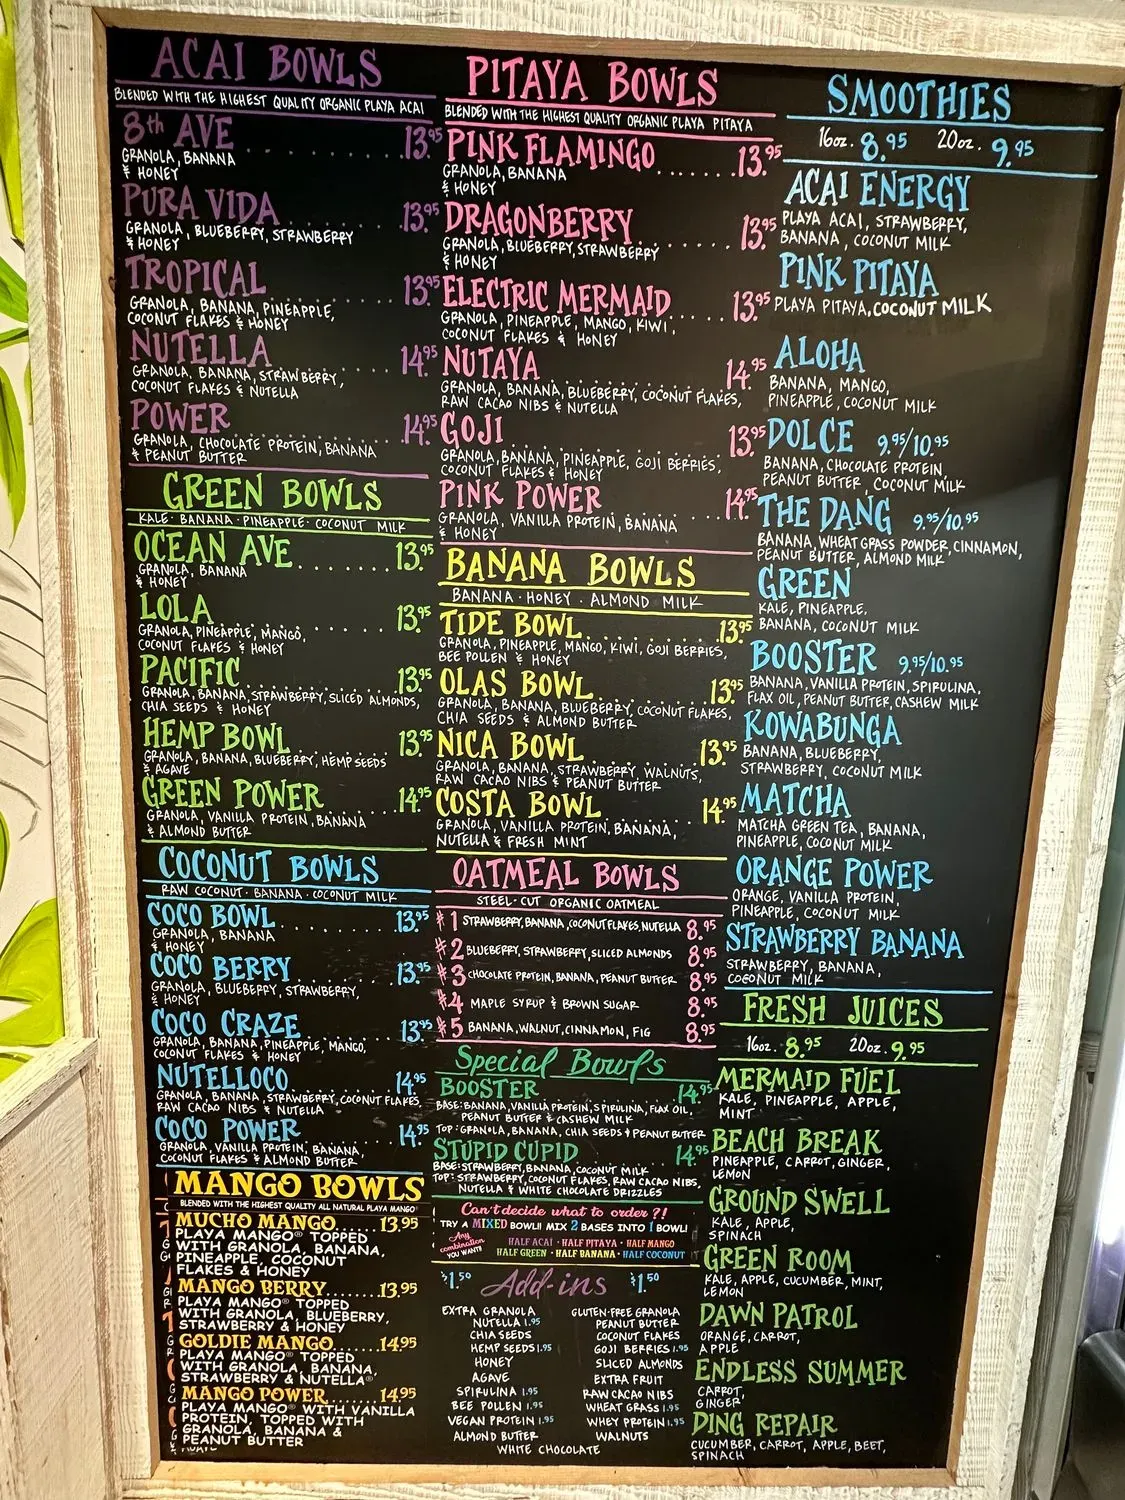 ACAI BOWLS
BLENDED WITH THE HIGHEST QUALITY ORGANIC PLAYA ACAI
8th AVE . . . . . . . . . 13.95
GRANOLA, BANANA
& HONEY
PURA VIDA . . . . . . . 13.95
GRANOLA, BLUEBERRY, STRAWBERRY
& HONEY
TROPICAL . . . . . . . . 13.95
GRANOLA, BANANA, PINEAPPLE,
COCONUT FLAKES & HONEY
NUTELLA . . . . . . . . 14.95
GRANOLA, BANANA, STRAWBERRY,
COCONUT FLAKES & NUTELLA
POWER . . . . . . . . . 14.95
GRANOLA, CHOCOLATE PROTEIN, BANANA
& PEANUT BUTTER
GREEN BOWLS
KALE · BANANA · PINEAPPLE · COCONUT MILK
OCEAN AVE . . . . . . . 13.95
GRANOLA, BANANA
& HONEY
LOLA . . . . . . . . . 13.95
GRANOLA, PINEAPPLE, MANGO,
COCONUT FLAKES & HONEY
PACIFIC . . . . . . . . 13.95
GRANOLA, BANANA, STRAWBERRY, SLICED ALMONDS,
CHIA SEEDS & HONEY
HEMP BOWL . . . . . . . 13.95
GRANOLA, BANANA, BLUEBERRY, HEMP SEEDS
& AGAVE
GREEN POWER . . . . . . 14.95
GRANOLA, VANILLA PROTEIN, BANANA
& ALMOND BUTTER
COCONUT BOWLS
RAW COCONUT · BANANA · COCONUT MILK
COCO BOWL . . . . . . . 13.95
GRANOLA, BANANA
& HONEY
COCO BERRY . . . . . . . 13.95
GRANOLA, BLUEBERRY, STRAWBERRY,
& HONEY
COCO CRAZE . . . . . . . 13.95
GRANOLA, BANANA, PINEAPPLE, MANGO,
COCONUT FLAKES & HONEY
NUTELLOCO . . . . . . . 14.95
GRANOLA, BANANA, STRAWBERRY, COCONUT FLAKES,
RAW CACAO NIBS & NUTELLA
COCO POWER . . . . . . . 14.95
GRANOLA, VANILLA PROTEIN, BANANA,
COCONUT FLAKES & ALMOND BUTTER
MANGO BOWLS
BLENDED WITH THE HIGHEST QUALITY ALL NATURAL PLAYA MANGO®
MUCHO MANGO.......13.95
PLAYA MANGO® TOPPED
WITH GRANOLA, BANANA,
PINEAPPLE, COCONUT
FLAKES & HONEY
MANGO BERRY........13.95
PLAYA MANGO® TOPPED
WITH GRANOLA, BLUEBERRY,
STRAWBERRY & HONEY
GOLDIE MANGO.......14.95
PLAYA MANGO® TOPPED
WITH GRANOLA, BANANA,
STRAWBERRY & NUTELLA®
MANGO POWER........14.95
PLAYA MANGO® WITH VANILLA
PROTEIN, TOPPED WITH
GRANOLA, BANANA &
PEANUT BUTTER
PITAYA BOWLS
BLENDED WITH THE HIGHEST QUALITY ORGANIC PLAYA PITAYA
PINK FLAMINGO . . . . . . 13.95
GRANOLA, BANANA
& HONEY
DRAGONBERRY . . . . . . . 13.95
GRANOLA, BLUEBERRY, STRAWBERRY
& HONEY
ELECTRIC MERMAID . . . . 13.95
GRANOLA, PINEAPPLE, MANGO, KIWI,
COCONUT FLAKES & HONEY
NUTAYA . . . . . . . . . 14.95
GRANOLA, BANANA, BLUEBERRY, COCONUT FLAKES,
RAW CACAO NIBS & NUTELLA
GOJI . . . . . . . . . . 13.95
GRANOLA, BANANA, PINEAPPLE, GOJI BERRIES,
COCONUT FLAKES & HONEY
PINK POWER . . . . . . . 14.95
GRANOLA, VANILLA PROTEIN, BANANA
& HONEY
BANANA BOWLS
BANANA · HONEY · ALMOND MILK
TIDE BOWL . . . . . . . . 13.95
GRANOLA, PINEAPPLE, MANGO, KIWI, GOJI BERRIES,
BEE POLLEN & HONEY
OLAS BOWL . . . . . . . . 13.95
GRANOLA, BANANA, BLUEBERRY, COCONUT FLAKES,
CHIA SEEDS & ALMOND BUTTER
NICA BOWL . . . . . . . . 13.95
GRANOLA, BANANA, STRAWBERRY, WALNUTS,
RAW CACAO NIBS & PEANUT BUTTER
COSTA BOWL . . . . . . . 14.95
GRANOLA, VANILLA PROTEIN, BANANA,
NUTELLA & FRESH MINT
OATMEAL BOWLS
STEEL-CUT ORGANIC OATMEAL
#1 STRAWBERRY, BANANA, COCONUT FLAKES, NUTELLA 8.95
#2 BLUEBERRY, STRAWBERRY, SLICED ALMONDS 8.95
#3 CHOCOLATE PROTEIN, BANANA, PEANUT BUTTER 8.95
#4 MAPLE SYRUP & BROWN SUGAR 8.95
#5 BANANA, WALNUT, CINNAMON, FIG 8.95
Special Bowls
BOOSTER 14.95
BASE: BANANA, VANILLA PROTEIN, SPIRULINA, FLAX OIL,
PEANUT BUTTER & CASHEW MILK
TOP: GRANOLA, BANANA, CHIA SEEDS & PEANUT BUTTER
STUPID CUPID 14.95
BASE: STRAWBERRY, BANANA, COCONUT MILK
TOP: STRAWBERRY, COCONUT FLAKES, RAW CACAO NIBS,
NUTELLA & WHITE CHOCOLATE DRIZZLES
Can't decide what to order?!
TRY A MIXED BOWL!! MIX 2 BASES INTO 1 BOWL!
Any combination YOU WANT!!
HALF ACAI · HALF PITAYA · HALF MANGO
HALF GREEN · HALF BANANA · HALF COCONUT
$1.50 Add-ins $1.50
EXTRA GRANOLA GLUTEN-FREE GRANOLA
NUTELLA 1.95 PEANUT BUTTER
CHIA SEEDS COCONUT FLAKES
HEMP SEEDS 1.95 GOJI BERRIES 1.95
HONEY SLICED ALMONDS
AGAVE EXTRA FRUIT
SPIRULINA 1.95 RAW CACAO NIBS
BEE POLLEN 1.95 WHEAT GRASS 1.95
VEGAN PROTEIN 1.95 WHEY PROTEIN 1.95
ALMOND BUTTER WALNUTS
WHITE CHOCOLATE
SMOOTHIES
16oz. 8.95 20oz. 9.95
ACAI ENERGY
PLAYA ACAI, STRAWBERRY,
BANANA, COCONUT MILK
PINK PITAYA
PLAYA PITAYA, COCONUT MILK
ALOHA
BANANA, MANGO,
PINEAPPLE, COCONUT MILK
DOLCE 9.95/10.95
BANANA, CHOCOLATE PROTEIN,
PEANUT BUTTER, COCONUT MILK
THE DANG 9.95/10.95
BANANA, WHEAT GRASS POWDER, CINNAMON,
PEANUT BUTTER, ALMOND MILK
GREEN
KALE, PINEAPPLE,
BANANA, COCONUT MILK
BOOSTER 9.95/10.95
BANANA, VANILLA PROTEIN, SPIRULINA,
FLAX OIL, PEANUT BUTTER, CASHEW MILK
KOWABUNGA
BANANA, BLUEBERRY,
STRAWBERRY, COCONUT MILK
MATCHA
MATCHA GREEN TEA, BANANA,
PINEAPPLE, COCONUT MILK
ORANGE POWER
ORANGE, VANILLA PROTEIN,
PINEAPPLE, COCONUT MILK
STRAWBERRY BANANA
STRAWBERRY, BANANA,
COCONUT MILK
FRESH JUICES
16oz. 8.95 20oz. 9.95
MERMAID FUEL
KALE, PINEAPPLE, APPLE,
MINT
BEACH BREAK
PINEAPPLE, CARROT, GINGER,
LEMON
GROUND SWELL
KALE, APPLE,
SPINACH
GREEN ROOM
KALE, APPLE, CUCUMBER, MINT,
LEMON
DAWN PATROL
ORANGE, CARROT,
APPLE
ENDLESS SUMMER
CARROT,
GINGER
DING REPAIR
CUCUMBER, CARROT, APPLE, BEET,
SPINACH